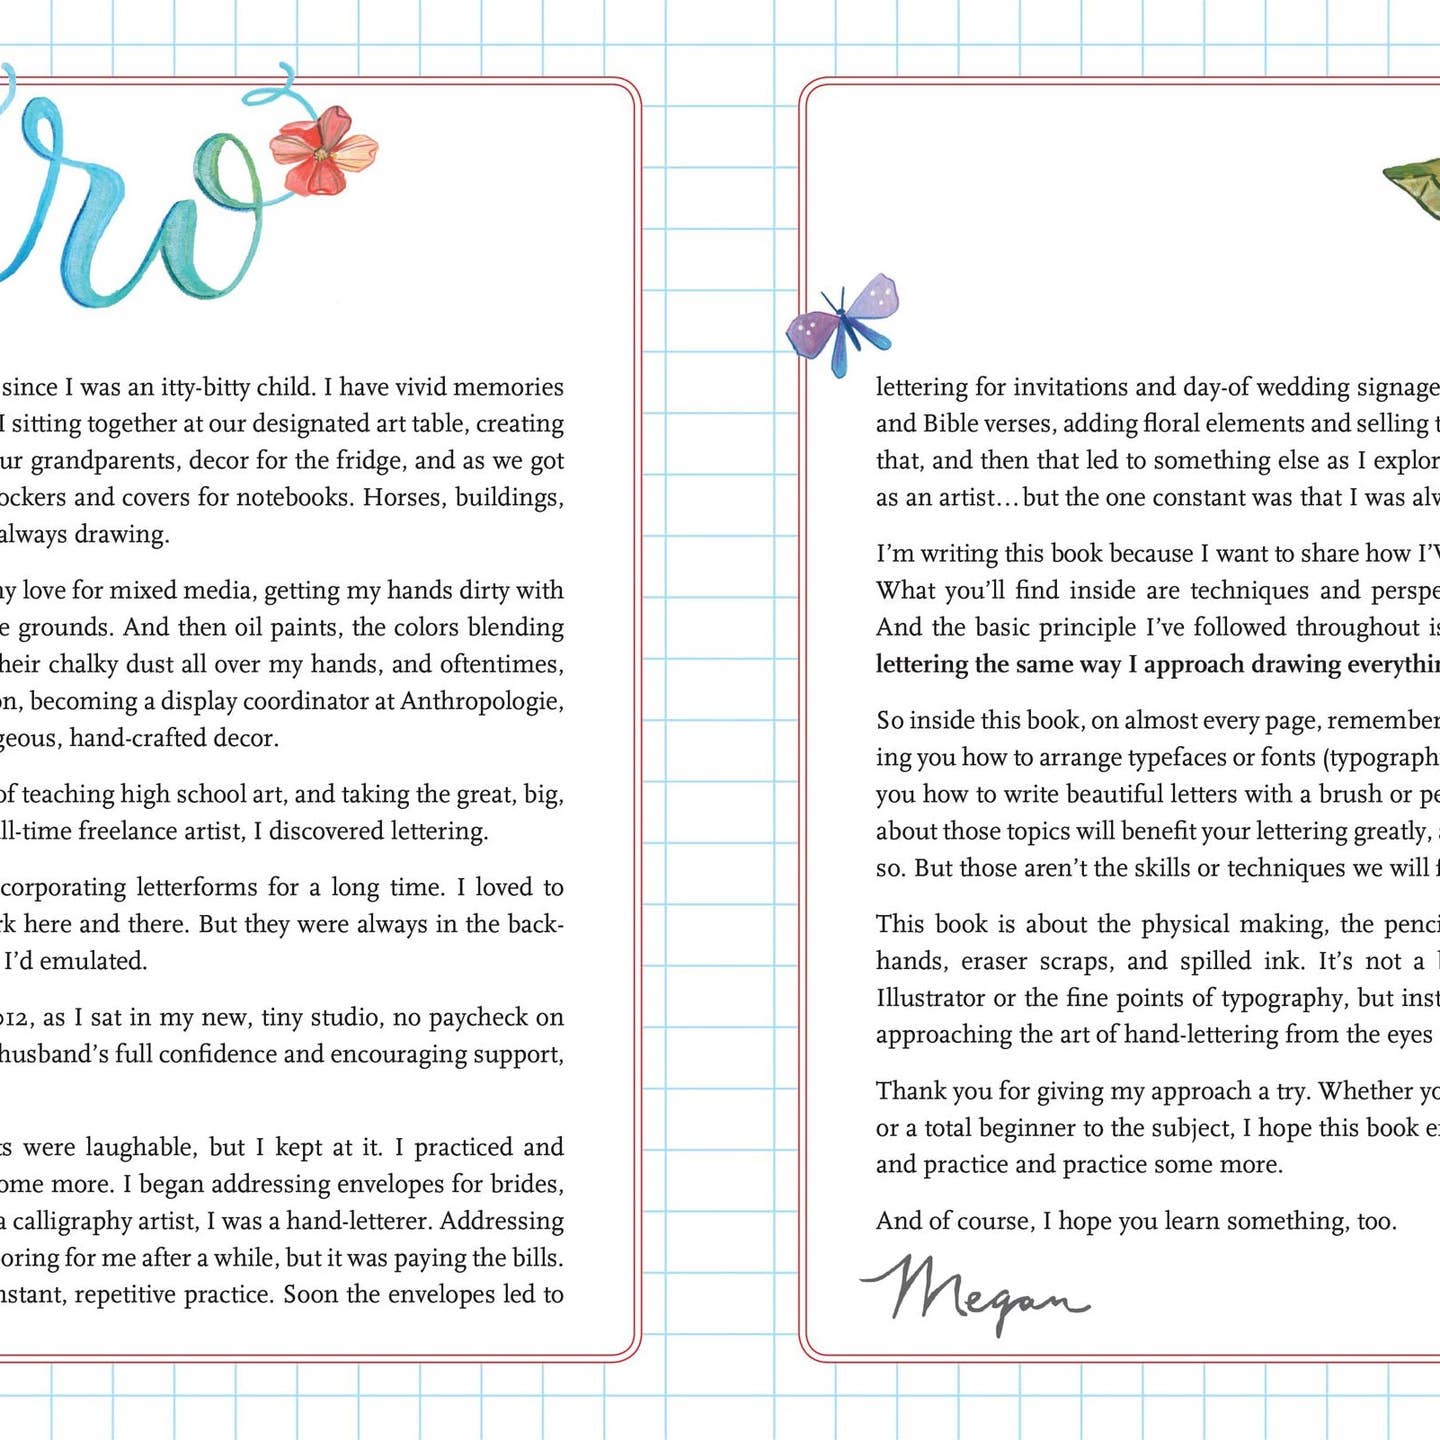 ro
since I was an itty-bitty child. I have vivid memories
I sitting together at our designated art table, creating
ur grandparents, decor for the fridge, and as we got
ockers and covers for notebooks. Horses, buildings,
always drawing.
ny love for mixed media, getting my hands dirty with
e grounds. And then oil paints, the colors blending
heir chalky dust all over my hands, and oftentimes,
on, becoming a display coordinator at Anthropologie,
geous, hand-crafted decor.
of teaching high school art, and taking the great, big,
ll-time freelance artist, I discovered lettering.
corporating letterforms for a long time. I loved to
rk here and there. But they were always in the back-
I’d emulated.
012, as I sat in my new, tiny studio, no paycheck on
husband’s full confidence and encouraging support,
ts were laughable, but I kept at it. I practiced and
ome more. I began addressing envelopes for brides,
a calligraphy artist, I was a hand-letterer. Addressing
oring for me after a while, but it was paying the bills.
nstant, repetitive practice. Soon the envelopes led to
lettering for invitations and day-of wedding signage
and Bible verses, adding floral elements and selling t
that, and then that led to something else as I explor
as an artist…but the one constant was that I was alw
I’m writing this book because I want to share how I’V
What you’ll find inside are techniques and perspe
And the basic principle I’ve followed throughout is
lettering the same way I approach drawing everythin
So inside this book, on almost every page, remember
ing you how to arrange typefaces or fonts (typograph
you how to write beautiful letters with a brush or pe
about those topics will benefit your lettering greatly, a
so. But those aren’t the skills or techniques we will f
This book is about the physical making, the penci
hands, eraser scraps, and spilled ink. It’s not a b
Illustrator or the fine points of typography, but inst
approaching the art of hand-lettering from the eyes
Thank you for giving my approach a try. Whether yo
or a total beginner to the subject, I hope this book e
and practice and practice some more.
And of course, I hope you learn something, too.
Megan